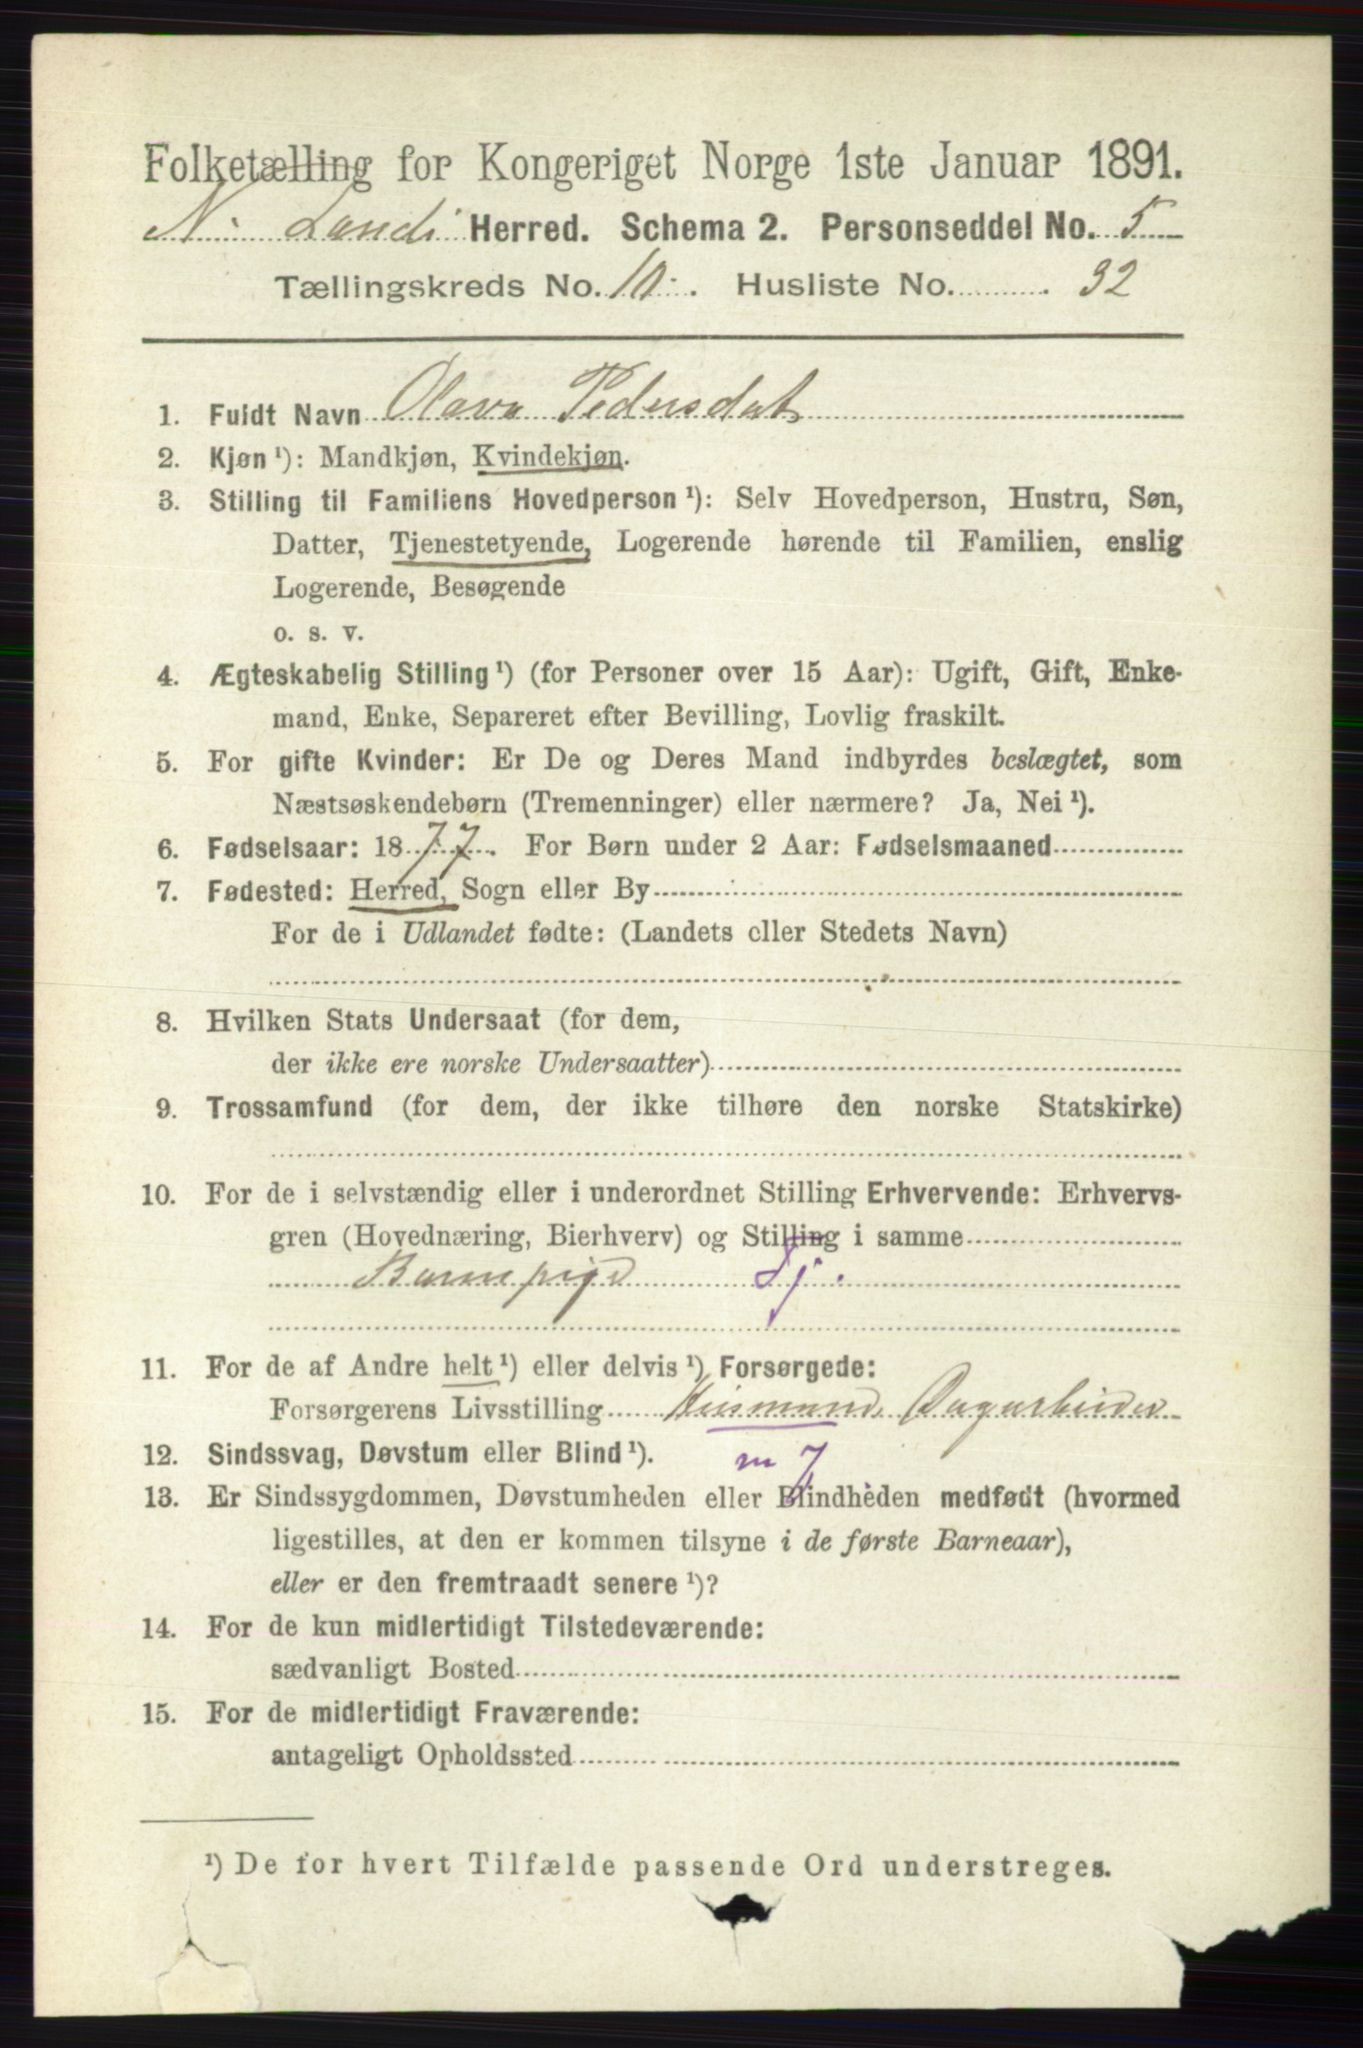 Folketælling for Kongeriget Norge 1ste Januar 1891.
N. Land Herred. Schema 2. Personseddel No. 5
Tællingskreds No. 10. Husliste No. 32
1. Fuldt Navn Olava Pedersdat
2. Kjøn ¹): Mandkjøn, Kvindekjøn.
3. Stilling til Familiens Hovedperson ¹): Selv Hovedperson, Hustru, Søn,
Datter, Tjenestetyende, Logerende hørende til Familien, enslig
Logerende, Besøgende
o. s. v.
4. Ægteskabelig Stilling ¹) (for Personer over 15 Aar): Ugift, Gift, Enke-
mand, Enke, Separeret efter Bevilling, Lovlig fraskilt.
5. For gifte Kvinder: Er De og Deres Mand indbyrdes beslægtet, som
Næstsøskendebørn (Tremenninger) eller nærmere? Ja, Nei ¹).
6. Fødselsaar: 1877. For Børn under 2 Aar: Fødselsmaaned
7. Fødested: Herred, Sogn eller By
For de i Udlandet fødte: (Landets eller Stedets Navn)
8. Hvilken Stats Undersaat (for dem,
der ikke ere norske Undersaatter)
9. Trossamfund (for dem, der ikke tilhøre den norske Statskirke)
10. For de i selvstændig eller i underordnet Stilling Erhvervende: Erhvervs-
gren (Hovednæring, Bierhverv) og Stilling i samme
Barnepige
11. For de af Andre helt ¹) eller delvis ¹) Forsørgede:
Forsørgerens Livsstilling Husmand. Dagarbeider
12. Sindssvag, Døvstum eller Blind ¹).
m 7
13. Er Sindssygdommen, Døvstumheden eller Blindheden medfødt (hvormed
ligestilles, at den er kommen tilsyne i de første Barneaar),
eller er den fremtraadt senere ¹)?
14. For de kun midlertidigt Tilstedeværende:
sædvanligt Bosted
15. For de midlertidigt Fraværende:
antageligt Opholdssted
¹) De for hvert Tilfælde passende Ord understreges.